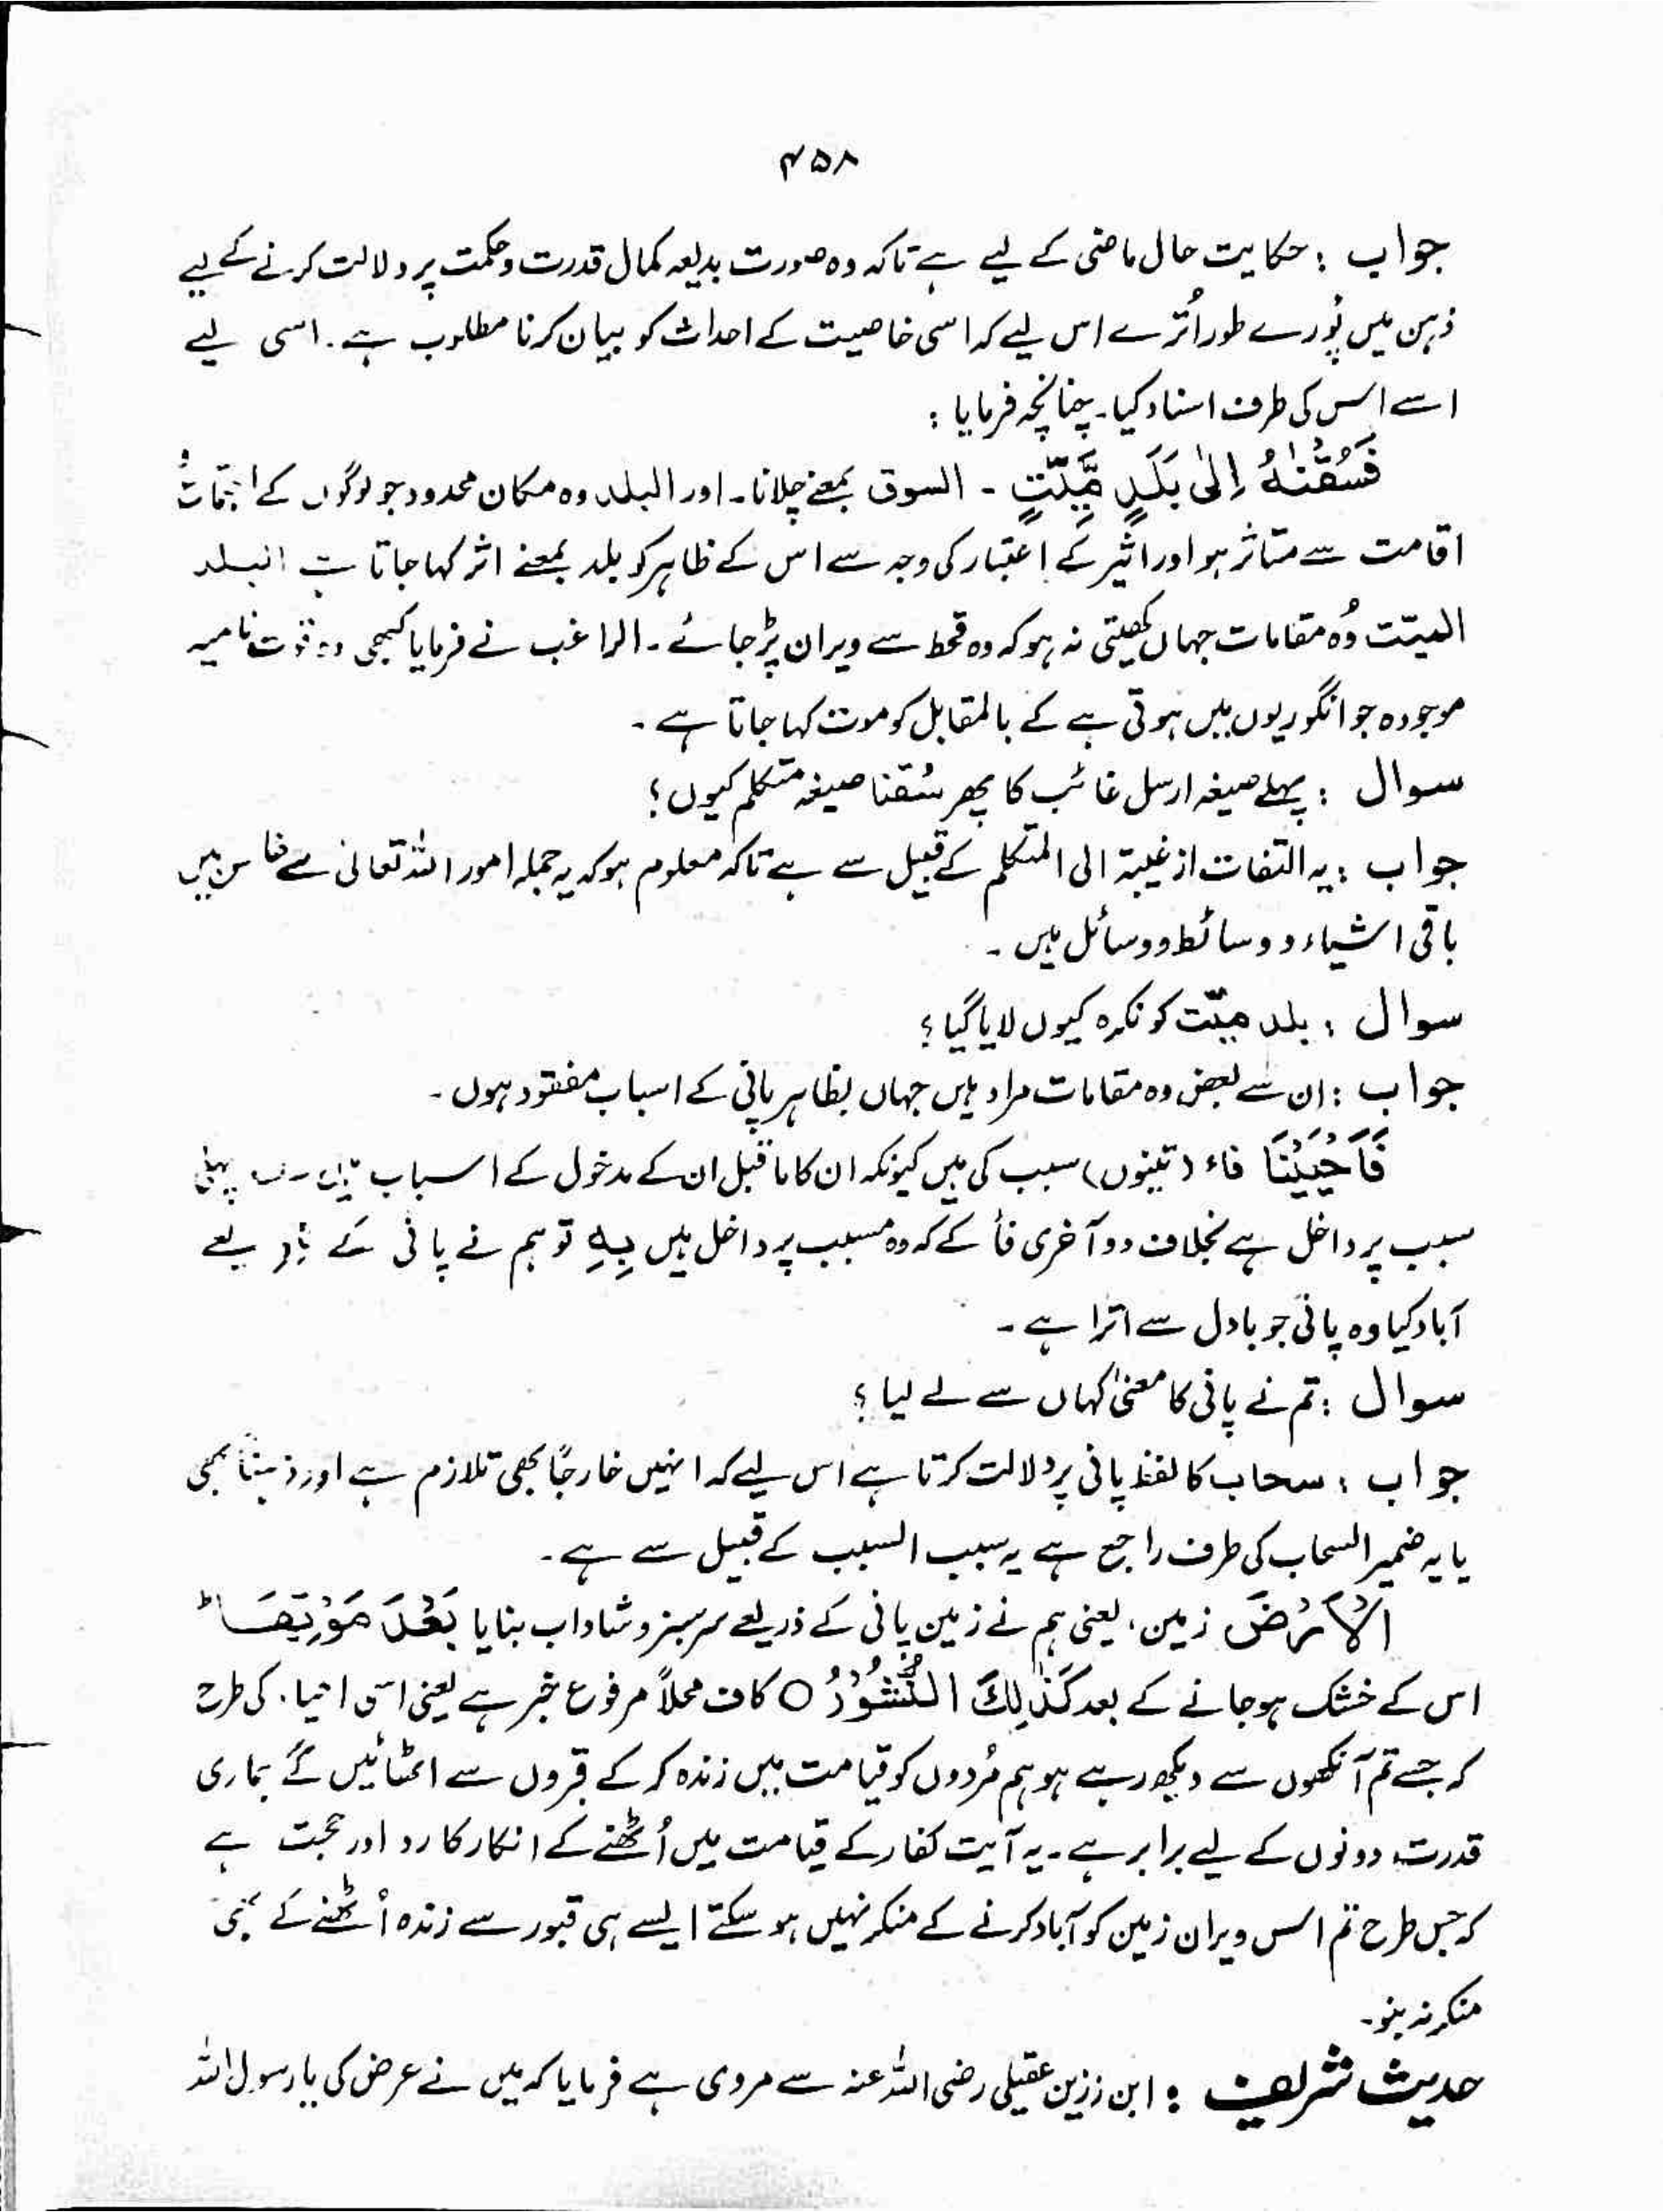 ۴۵۸
جواب : حکایت حال ماضی کے لیے ہے تاکہ وہ صورت بدیعہ کمال قدرت و حکمت پر دلالت کرنے کے لیے
ذہن میں پُورے طور اُترے اس لیے کہ اسی خاصیت کے احداث کو بیان کرنا مطلوب ہے ۔ اسی لیے
اسے اس کی طرف اسناد کیا ۔ چنانچہ فرمایا :
فَسُقْنٰهُ اِلٰی بَلَدٍ مَّیِّتٍ ۔ السوق بمعنے چلانا ۔ اور البلد وہ مکان محدود جو لوگوں کے
اقامت سے متاثر ہو اور اثیر کے اعتبار کی وجہ سے اس کے ظاہر کو بلد بمعنے اثر کہا جاتا ہے البلد
المیتت وُہ مقامات جہاں کھیتی نہ ہو کہ وہ قحط سے ویران پڑ جائے ۔ الراغب نے فرمایا کبھی وہ قوت نامیہ
موجودہ جو انگوریوں میں ہوتی ہے کے بالمقابل کو موت کہا جاتا ہے ۔
سوال : پہلے صیغہ ارسل غائب کا پھر سُقنا صیغہ متکلم کیوں ؟
جواب : یہ التفات از غیبۃ الی المتکلم کے قبیل سے ہے تاکہ معلوم ہو کہ یہ جملہ امور اللہ تعالٰی سے خاص ہیں
باقی اشیاء و وسائط و وسائل ہیں ۔
سوال : بلد میّت کو نکرہ کیوں لایا گیا ؟
جواب : ان سے بعض وہ مقامات مراد ہیں جہاں بظاہر پانی کے اسباب مفقود ہوں ۔
فَاَحْیَیْنَا فاء (تینوں) سبب کی ہیں کیونکہ ان کا ماقبل ان کے مدخول کے اسباب ہیں پہلی
سبب پر داخل ہے بخلاف دو آخری فأ کے کہ وہ مسبب پر داخل ہیں بِهٖ تو ہم نے پانی کے ذریعے
آباد کیا وہ پانی جو بادل سے اترا ہے ۔
سوال : تم نے پانی کا معنیٰ کہاں سے لے لیا ؟
جواب : سحاب کا لفظ پانی پر دلالت کرتا ہے اس لیے کہ انہیں خارجًا بھی تلازم ہے اور ذہنًا بھی
یا یہ ضمیر السحاب کی طرف راجع ہے یہ سبب السبب کے قبیل سے ہے ۔
الْاَرْضَ زمین ، یعنی ہم نے زمین پانی کے ذریعے سرسبز و شاداب بنایا بَعْدَ مَوْتِهَا ؕ
اس کے خشک ہو جانے کے بعد کَذٰلِكَ النُّشُوْرُ ○ کاف محلاً مرفوع خبر ہے یعنی اسی احیاء کی طرح
کہ جسے تم آنکھوں سے دیکھ رہے ہو ہم مُردوں کو قیامت میں زندہ کر کے قبروں سے اٹھائیں گے ہماری
قدرت دونوں کے لیے برابر ہے ۔ یہ آیت کفار کے قیامت میں اُٹھنے کے انکار کا رد اور حجت ہے
کہ جس طرح تم اس ویران زمین کو آباد کرنے کے منکر نہیں ہو سکتے ایسے ہی قبور سے زندہ اُٹھنے کے بھی
منکر نہ بنو ۔
حدیث شریف : ابن رزین عقیلی رضی اللہ عنہ سے مروی ہے فرمایا کہ میں نے عرض کی یا رسول اللہ